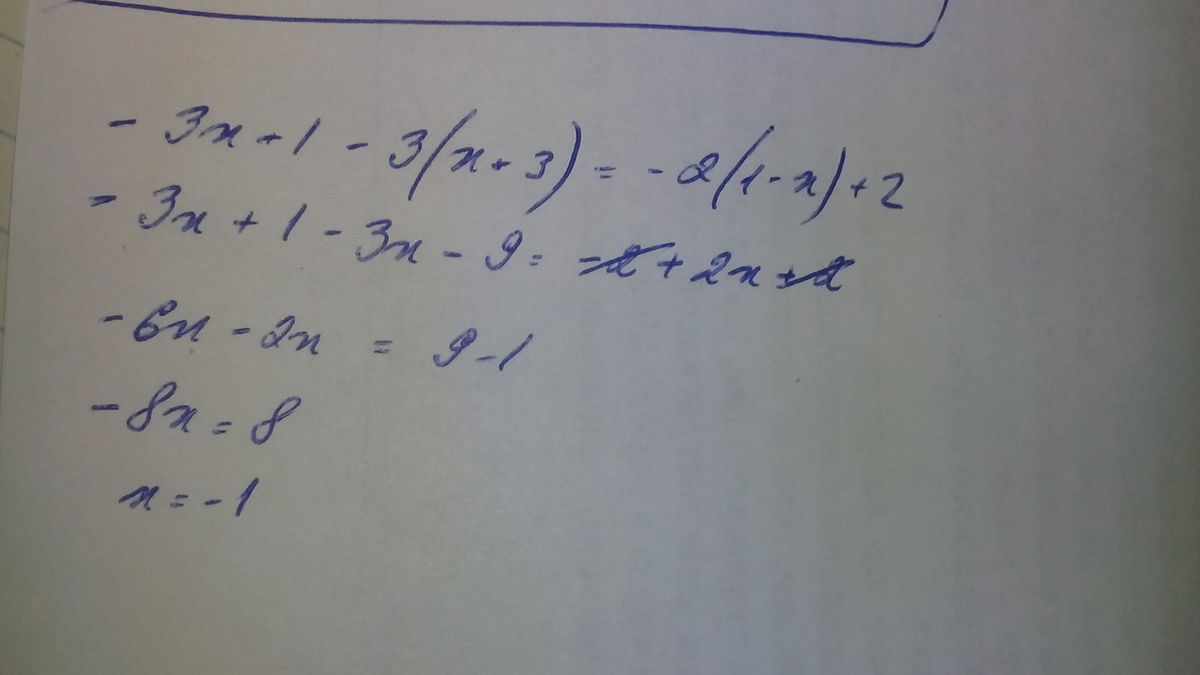 - 3x + 1 - 3(x + 3) = - 2(1 - x) + 2
- 3x + 1 - 3x - 9 = - 2 + 2x + 2
- 6x - 2x = 9 - 1
- 8x = 8
x = - 1